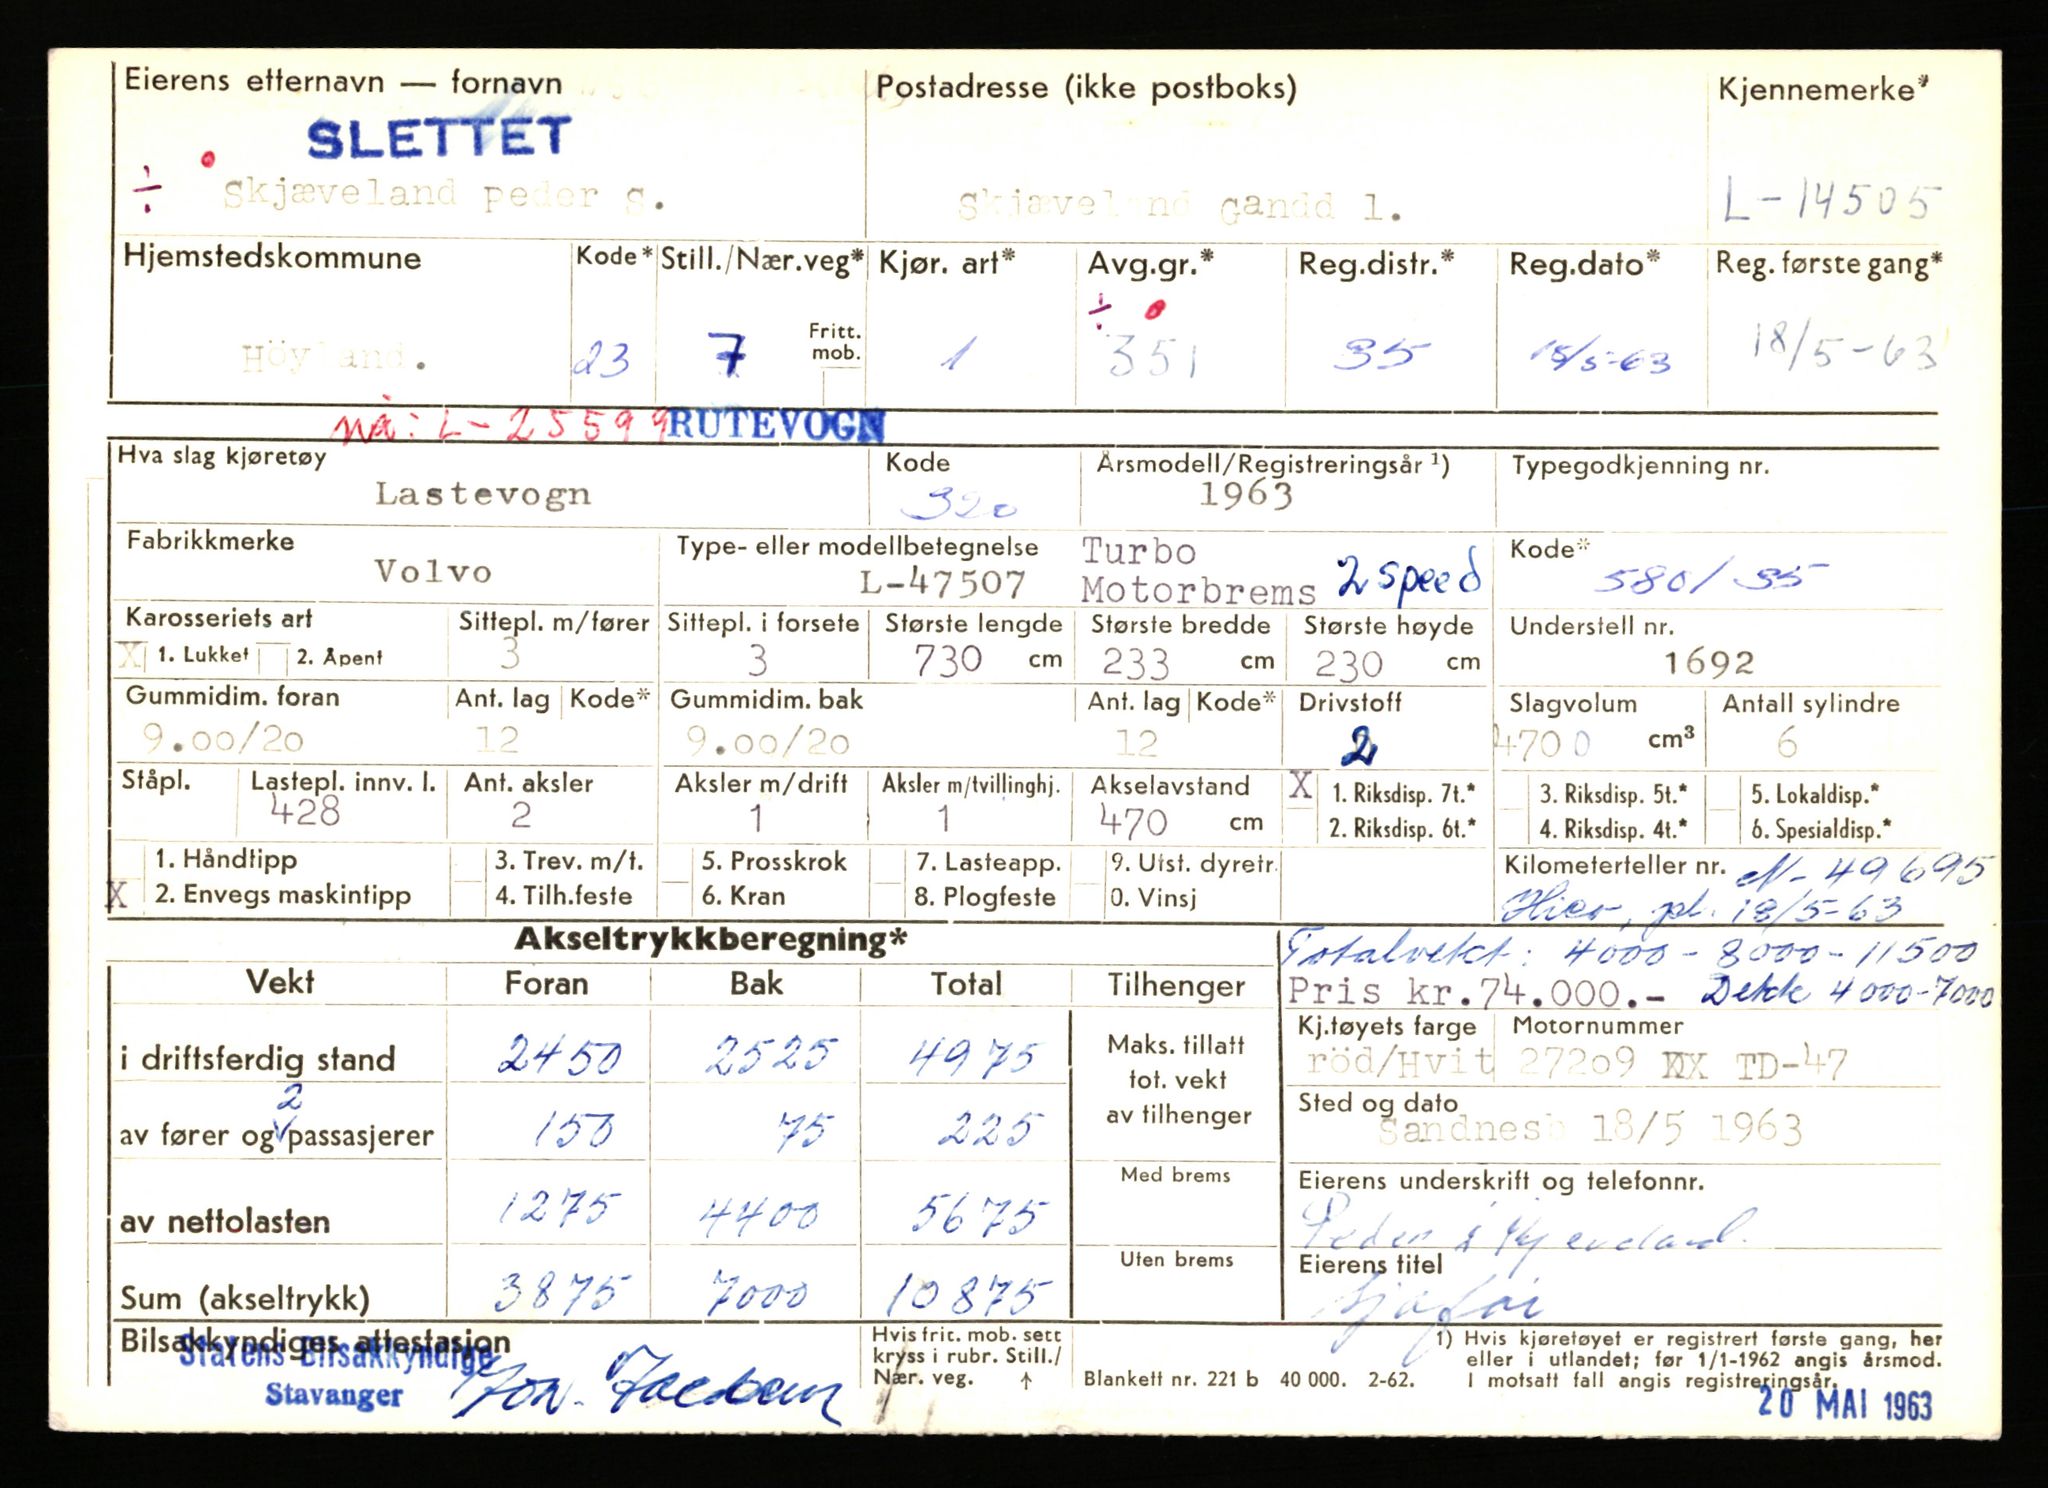 Eierens etternavn — fornavn Postadresse (ikke postboks) Kjennemerke*
SLETTET
÷ Skjæveland peder S. Skjæveland Gandd 1. L-14505
Hjemstedskommune Kode* Still./Nær.veg* Kjør. art* Avg.gr.* Reg.distr.* Reg.dato* Reg. første gang*
÷
Fritt. mob.
Höyland. 23 7 1 351 35 18/5-63 18/5-63
nå: L-25599 RUTEVOGN
Hva slag kjøretøy Kode Årsmodell/Registreringsår ¹) Typegodkjenning nr.
Lastevogn 320 1963
Fabrikkmerke Type- eller modellbetegnelse Turbo Kode*
Volvo L-47507 Motorbrems 2 speed 580/35
Karosseriets art Sittepl. m/fører Sittepl. i forsete Største lengde Største bredde Største høyde Understell nr.
X 1. Lukket 2. Åpent 3 3 730 cm 233 cm 230 cm 1692
Gummidim. foran Ant. lag Kode* Gummidim. bak Ant. lag Kode* Drivstoff Slagvolum Antall sylindre
9.00/20 12 9.00/20 12 2 4700 cm³ 6
Ståpl. Lastepl. innv. l. Ant. aksler Aksler m/drift Aksler m/tvillinghj. Akselavstand X 1. Riksdisp. 7t.* 3. Riksdisp. 5t.* 5. Lokaldisp.*
428 2 1 1 470 cm 2. Riksdisp. 6t.* 4. Riksdisp. 4t.* 6. Spesialdisp.*
1. Håndtipp 3. Trev. m/t. 5. Prosskrok 7. Lasteapp. 9. Utst. dyretr. Kilometerteller nr. N-49695
X 2. Envegs maskintipp 4. Tilh.feste 6. Kran 8. Plogfeste 0. Vinsj 18/5-63
Akseltrykkberegning* Totalvekt: 4000-8000-11500
Vekt Foran Bak Total Tilhenger Pris kr.74.000.- Dekk 4000-7000
Kj.tøyets farge Motornummer
i driftsferdig stand 2450 2525 4975 Maks. tillatt tot. vekt av tilhenger röd/Hvit 27209 XX TD-47
Sted og dato
2
av fører og passasjerer 150 75 225 Sandnesb 18/5 1963
Med brems Eierens underskrift og telefonnr.
av nettolasten 1275 4400 5675 Peder S Skjæveland.
Uten brems Eierens titel
Sum (akseltrykk) 3875 7000 10875 Sjåför
Bilsakkyndiges attestasjon Hvis frit. mob. sett kryss i rubr. Still./ Nær. veg. ↑ Blankett nr. 221 b 40 000. 2-62.
Statens Bilsakkyndige
Stavanger
1) Hvis kjøretøyet er registrert første gang, her
eller i utlandet; før 1/1-1962 angis årsmod.
I motsatt fall angis registreringsår.
20 MAI 1963